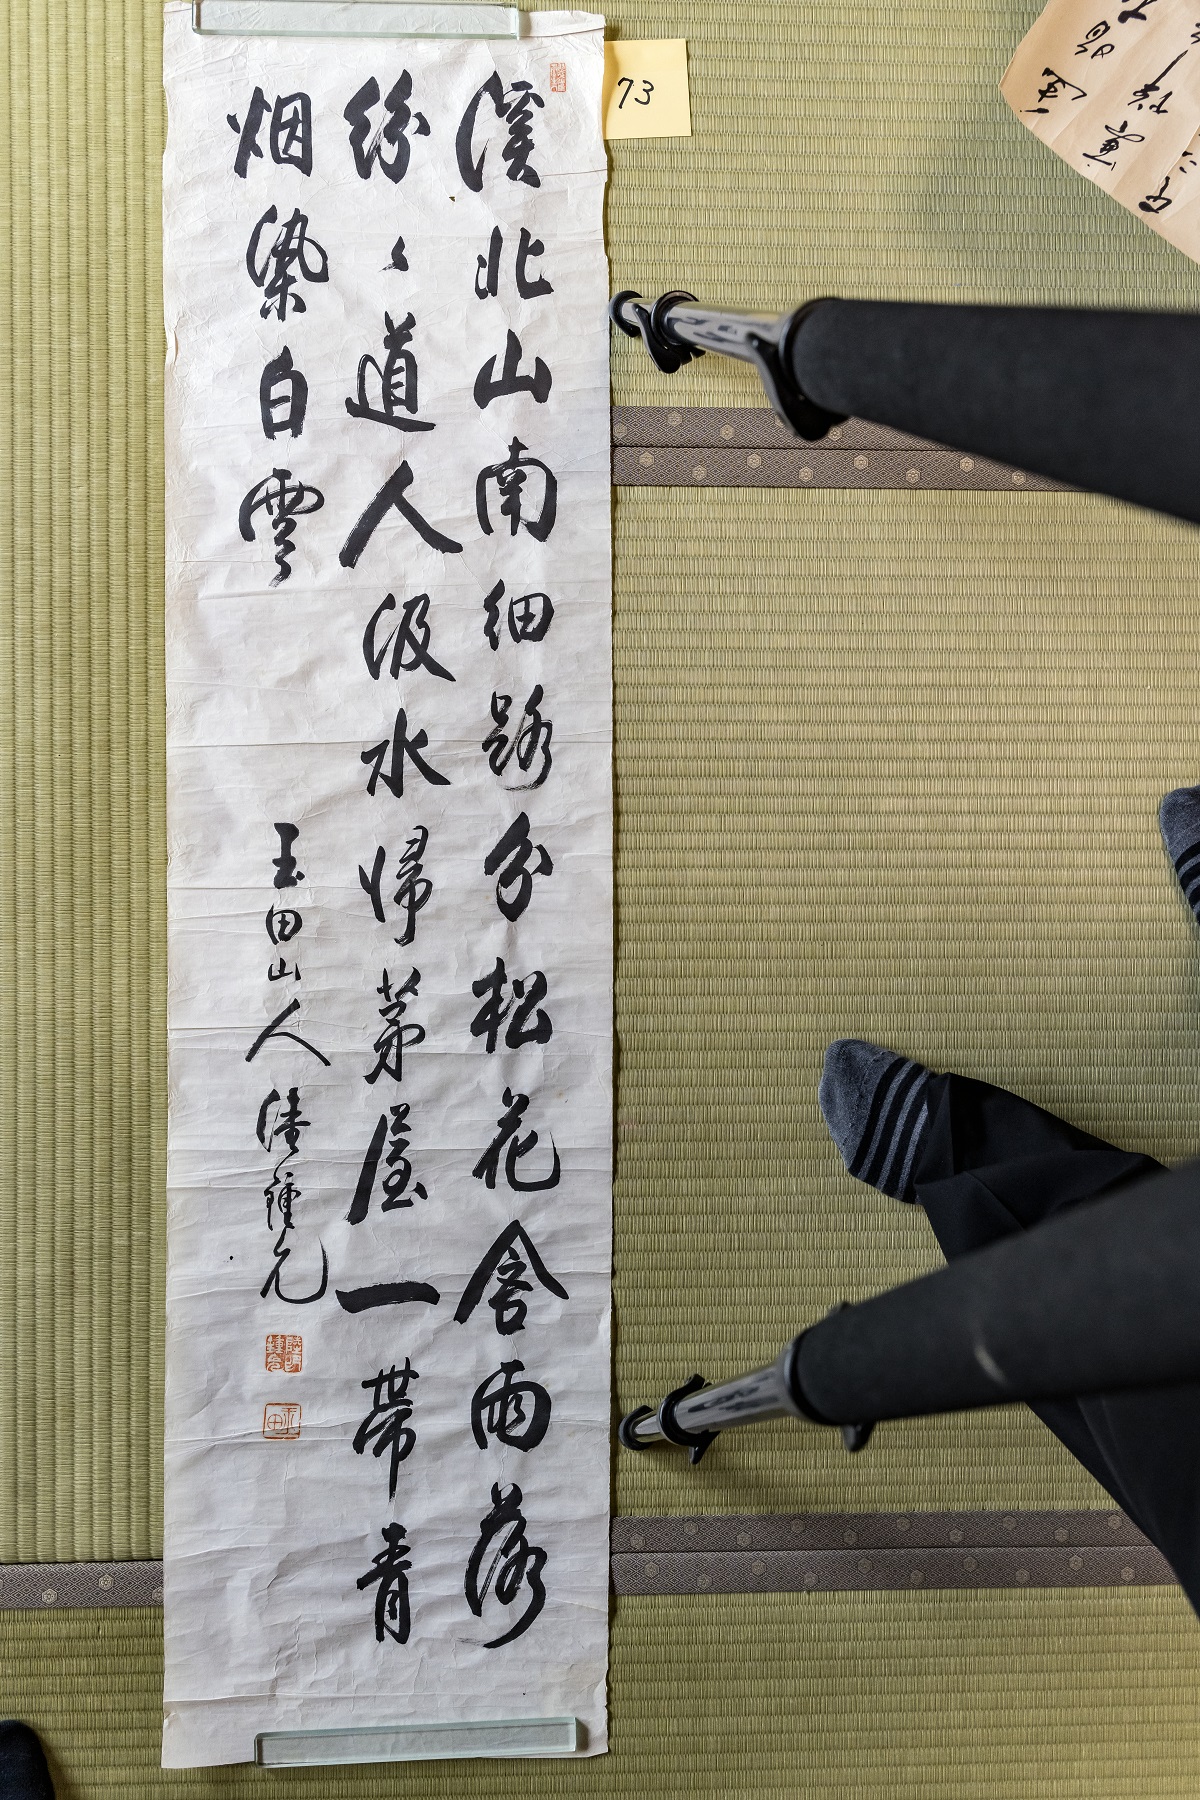 溪北山南細路分松花含雨落
紛〻道人汲水帰茅屋一帶青
烟染白雲
玉田山人陸鍾允
玉田
73